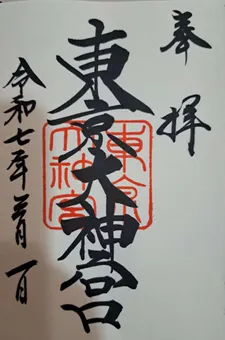 奉拝
東京大神宮
東京
大神宮
令和七年 月一日